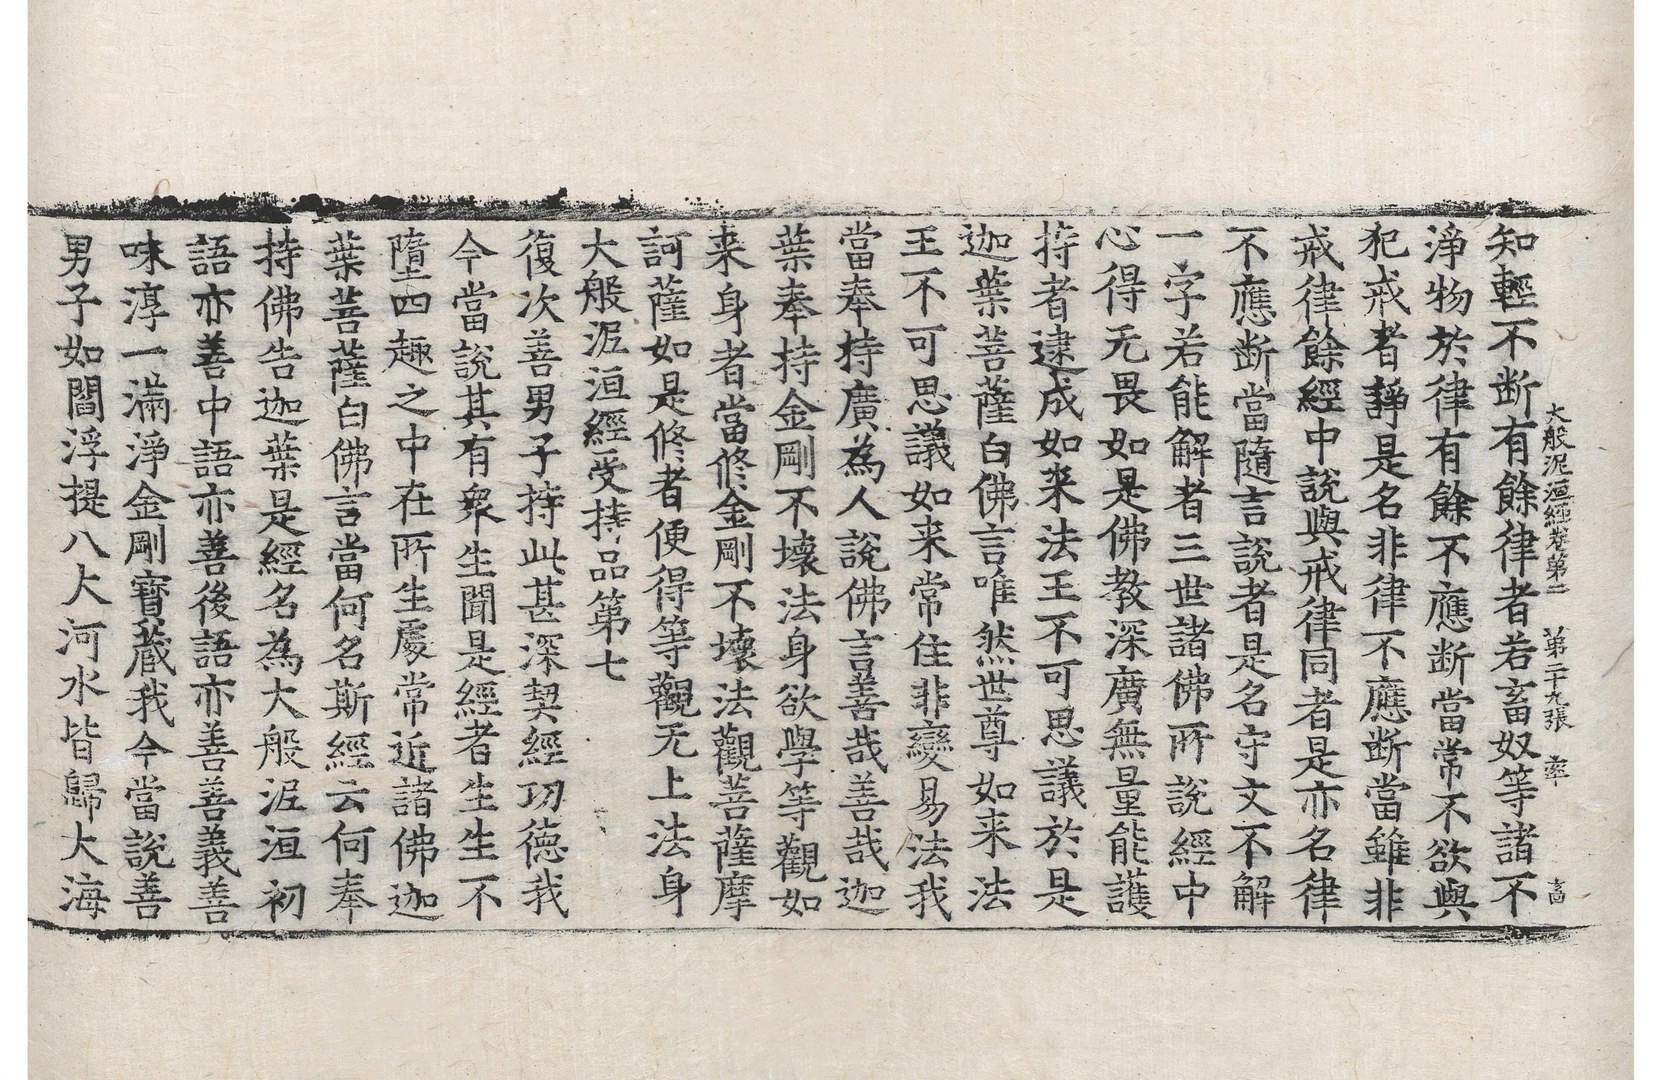 大般泥洹經卷第二 第二十九張 率 高
知輕不断有餘律者若畜奴等諸不
淨物於律有餘不應断當常不欲與
犯戒者諍是名非律不應断當雖非
戒律餘經中說與戒律同者是亦名律
不應断當隨言說者是名守文不解
一字若能解者三世諸佛所說經中
心得无畏如是佛教深廣無量能護
持者逮成如来法王不可思議於是
迦葉菩薩白佛言唯然世尊如来法
王不可思議如来常住非變易法我
當奉持廣為人說佛言善哉善哉迦
葉奉持金剛不壞法身欲學等觀如
来身者當修金剛不壞法觀菩薩摩
訶薩如是修者便得等觀无上法身
大般泥洹經受持品第七
復次善男子持此甚深契經功德我
今當說其有衆生聞是經者生生不
墮四趣之中在所生處常近諸佛迦
葉菩薩白佛言當何名斯經云何奉
持佛告迦葉是經名為大般泥洹初
語亦善中語亦善後語亦善善義善
味淳一滿淨金剛寶藏我今當說善
男子如閻浮提八大河水皆歸大海